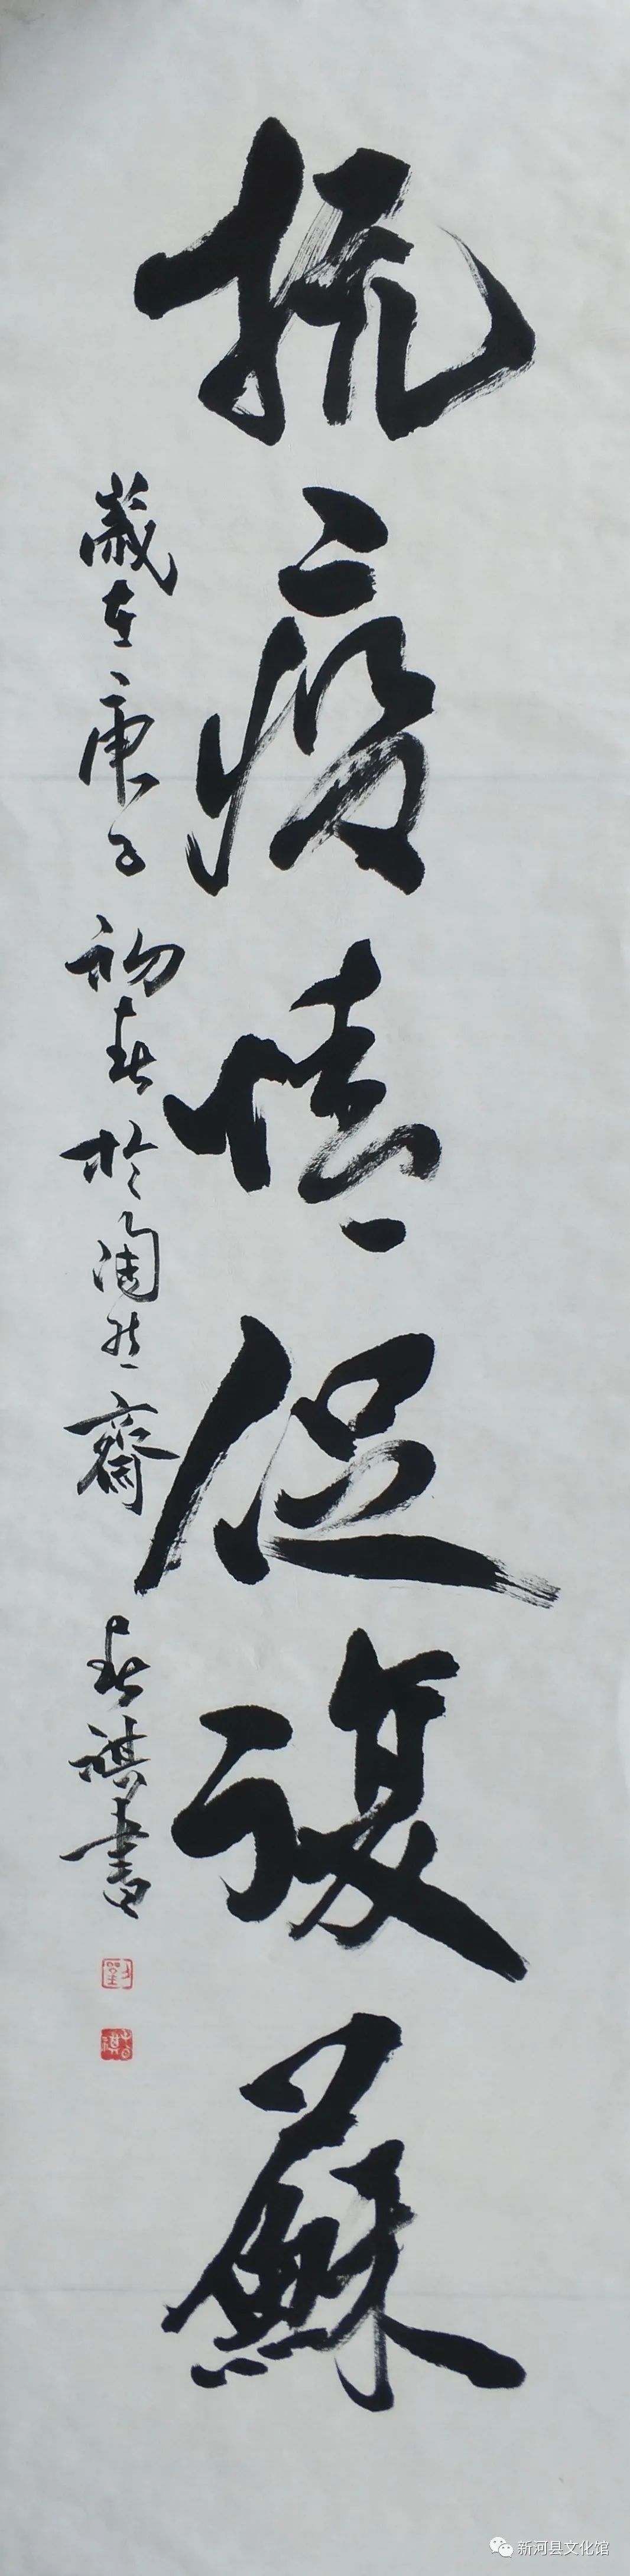 抗疫情促復蘇
歲在庚子初春於陶然齋春祺書
新河县文化馆